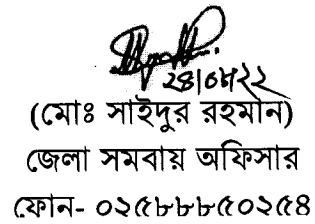 ২৪/০৮/২২
(মোঃ সাইদুর রহমান)
জেলা সমবায় অফিসার
ফোন- ০২৫৮৮৮৫০২৫৪